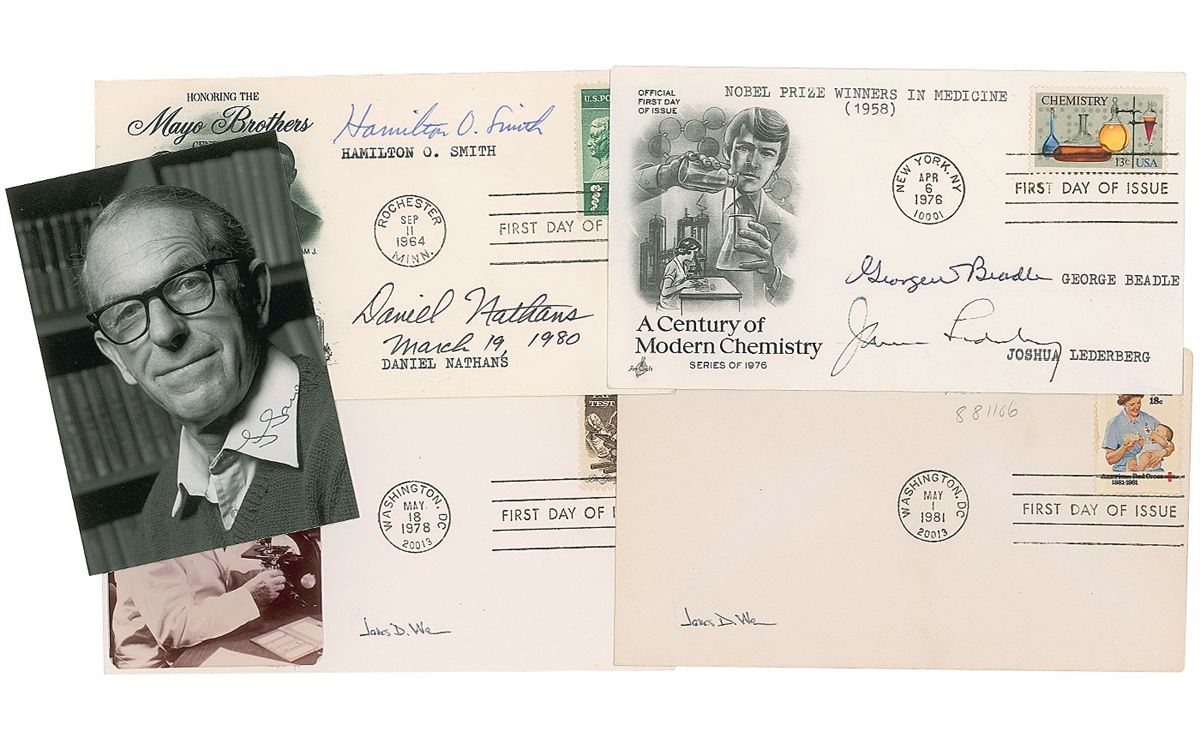 HONORING THE
Mayo Brothers
Hamilton O. Smith
HAMILTON O. SMITH
U.S. PO
ROCHESTER
SEP
11
1964
MINN.
FIRST DAY OF
AM J.
Daniel Nathans
March 19, 1980
DANIEL NATHANS
OFFICIAL
FIRST DAY
OF ISSUE
NOBEL PRIZE WINNERS IN MEDICINE
(1958)
CHEMISTRY
13c USA
NEW YORK, NY
APR
6
1976
10001
FIRST DAY OF ISSUE
George W Beadle GEORGE BEADLE
Joshua Lederberg
JOSHUA LEDERBERG
A Century of
Modern Chemistry
SERIES OF 1976
TEST
WASHINGTON, DC
MAY
18
1978
20013
FIRST DAY OF I
James D. Wa
881166
18c
American Red Cross
1881-1981
WASHINGTON, DC
MAY
1
1981
20013
FIRST DAY OF ISSUE
James D. Wa